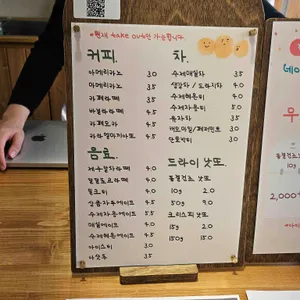 *현재 take out만 가능합니다.
커피.
아메리카노 3.0
아메리카노 3.5
카페라떼 3.5
바닐라라떼 4.5
카페모카 4.5
카라멜마끼아또 4.5
차.
수제매실차 3.5
생강차 / 도라지차 4.0
수제레몬티 4.0
수제자몽티 5.0
유자차 3.5
캐모마일/페퍼민트 3.0
단호박티 3.0
음료.
제주말차라떼 4.0
4.0
밀크티 4.0
상콤자몽에이드 4.5
수제자몽에이드 5.5
매실에이드 4.0
수제레몬에이드 4.5
아이스티 3.0
아샷추 3.5
드라이 낫또.
동결건조 낫또
10g 2.0
50g 9.0
크리스피 낫또
15g 2.0
150g 15.0
10g
2,000